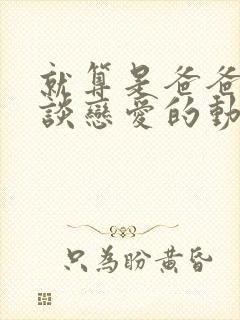 就算是爸爸
談戀愛的動
只為盼黃昏